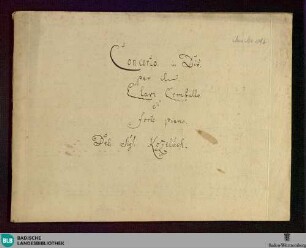 Concerto in Dis.
per il
Clavi Cembalo
o
forte piano
Del Sig. Kozeluch.
BLB BADISCHE
LANDESBIBLIOTHEK
Baden-Württemberg